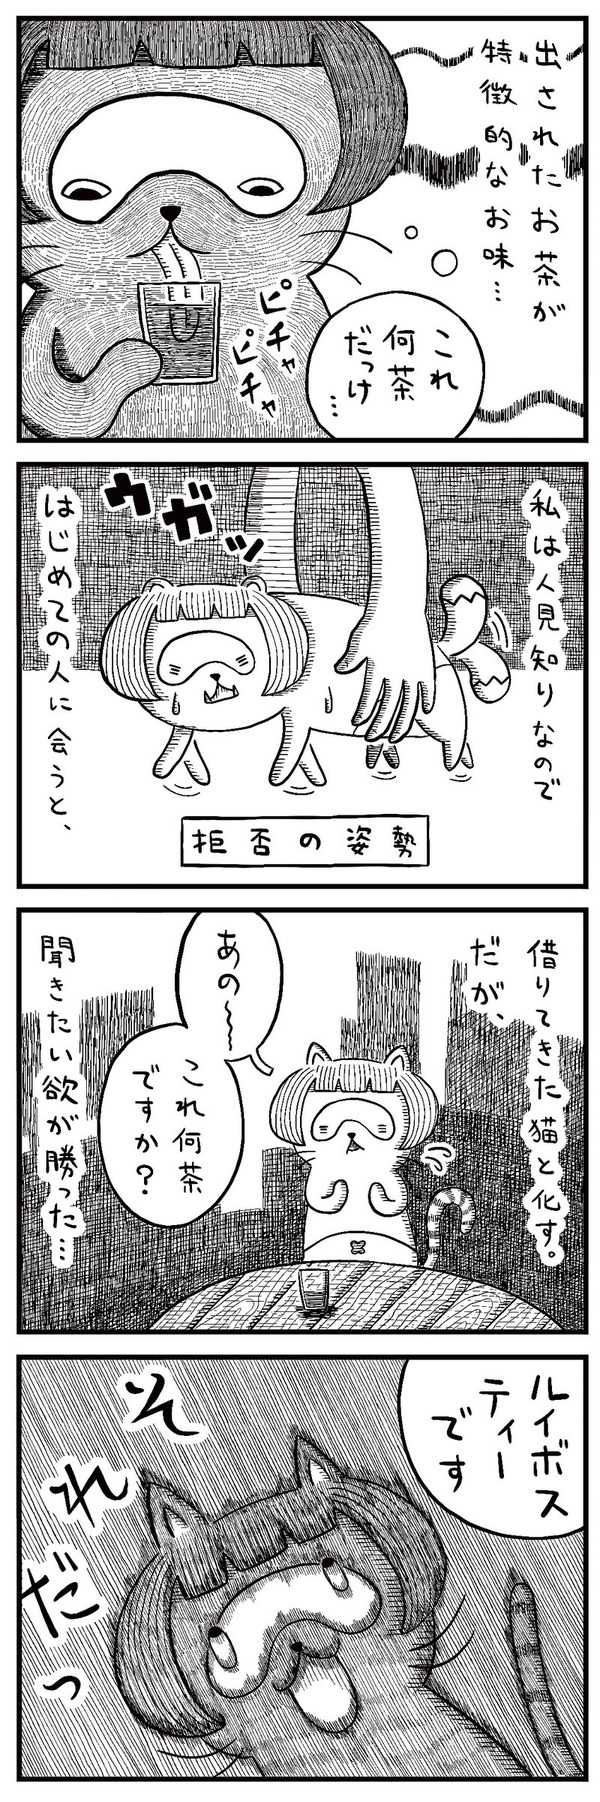 出されたお茶が
特徴的なお味…
ピチャ
ピチャ
これ
何茶
だっけ
…
私は人見知りなので
はじめての人に会うと、
ウガッ
拒否の姿勢
借りてきた猫と化す。
だが、
聞きたい欲が勝った…
あの〜
これ何茶
ですか?
ルイボス
ティー
です
それだっ